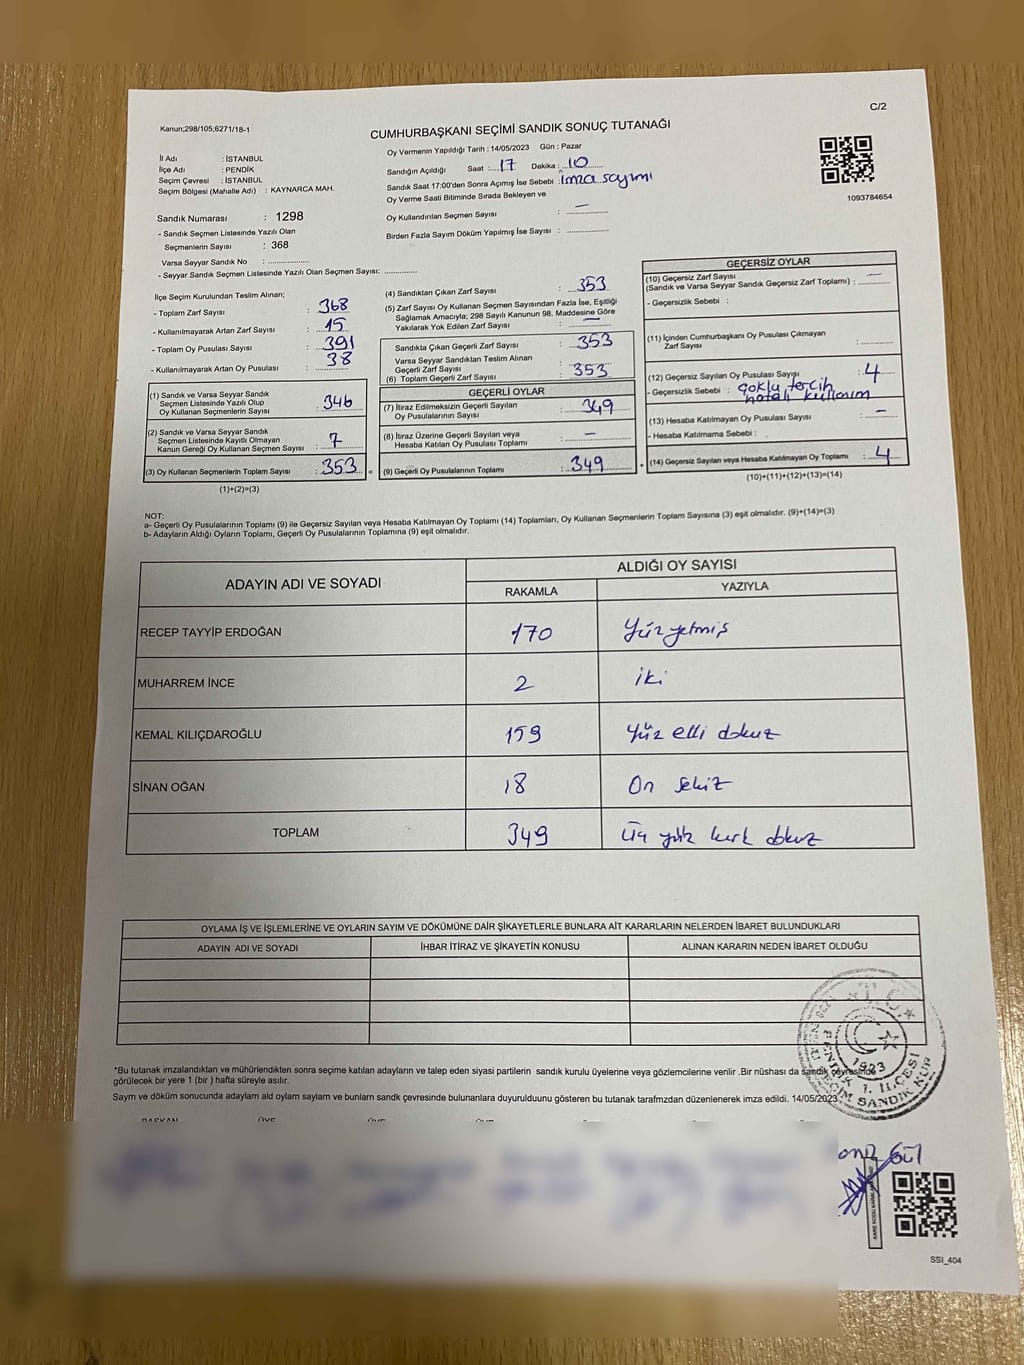 C/2
Kanun;298/105;6271/18-1
CUMHURBAŞKANI SEÇİMİ SANDIK SONUÇ TUTANAĞI
İl Adı : İSTANBUL
İlçe Adı : PENDİK
Seçim Çevresi : İSTANBUL
Seçim Bölgesi (Mahalle Adı) : KAYNARCA MAH.
Oy Vermenin Yapıldığı Tarih : 14/05/2023 Gün : Pazar
Sandığın Açıldığı Saat : 17 Dakika : 10
Sandık Saat 17:00'den Sonra Açımış İse Sebebi : imza sayımı
Oy Verme Saati Bitiminde Sırada Bekleyen ve
Oy Kullandırılan Seçmen Sayısı : —
Birden Fazla Sayım Döküm Yapılmış İse Sayısı : ............
1093784654
Sandık Numarası : 1298
- Sandık Seçmen Listesinde Yazılı Olan
Seçmenlerin Sayısı : 368
Varsa Seyyar Sandık No : ............
- Seyyar Sandık Seçmen Listesinde Yazılı Olan Seçmen Sayısı: ............
İlçe Seçim Kurulundan Teslim Alınan;
- Toplam Zarf Sayısı : 368
- Kullanılmayarak Artan Zarf Sayısı : 15
- Toplam Oy Pusulası Sayısı : 391
- Kullanılmayarak Artan Oy Pusulası : 38
(1) Sandık ve Varsa Seyyar Sandık
Seçmen Listesinde Yazılı Olup
Oy Kullanan Seçmenlerin Sayısı : 346
(2) Sandık ve Varsa Seyyar Sandık
Seçmen Listesinde Kayıtlı Olmayan
Kanun Gereği Oy Kullanan Seçmen Sayısı : 7
(3) Oy Kullanan Seçmenlerin Toplam Sayısı : 353 =
(1)+(2)=(3)
(4) Sandıktan Çıkan Zarf Sayısı : 353
(5) Zarf Sayısı Oy Kullanan Seçmen Sayısından Fazla İse, Eşitliği
Sağlamak Amacıyla; 298 Sayılı Kanunun 98. Maddesine Göre
Yakılarak Yok Edilen Zarf Sayısı : —
Sandıkta Çıkan Geçerli Zarf Sayısı : 353
Varsa Seyyar Sandıktan Teslim Alınan
Geçerli Zarf Sayısı
(6) Toplam Geçerli Zarf Sayısı : 353
GEÇERLİ OYLAR
(7) İtiraz Edilmeksizin Geçerli Sayılan
Oy Pusulalarının Sayısı : 349
(8) İtiraz Üzerine Geçerli Sayılan veya
Hesaba Katılan Oy Pusulası Toplamı : —
(9) Geçerli Oy Pusulalarının Toplamı : 349 +
GEÇERSİZ OYLAR
(10) Geçersiz Zarf Sayısı
(Sandık ve Varsa Seyyar Sandık Geçersiz Zarf Toplamı) : —
- Geçersizlik Sebebi :
(11) İçinden Cumhurbaşkanı Oy Pusulası Çıkmayan
Zarf Sayısı : ............
(12) Geçersiz Sayılan Oy Pusulası Sayısı : 4
- Geçersizlik Sebebi : çoklu tercih
hatalı kullanım
(13) Hesaba Katılmayan Oy Pusulası Sayısı : —
- Hesaba Katılmama Sebebi :
(14) Geçersiz Sayılan veya Hesaba Katılmayan Oy Toplamı : 4
(10)+(11)+(12)+(13)=(14)
NOT:
a- Geçerli Oy Pusulalarının Toplamı (9) ile Geçersiz Sayılan veya Hesaba Katılmayan Oy Toplamı (14) Toplamları, Oy Kullanan Seçmenlerin Toplam Sayısına (3) eşit olmalıdır. (9)+(14)=(3)
b- Adayların Aldığı Oyların Toplamı, Geçerli Oy Pusulalarının Toplamına (9) eşit olmalıdır.
ADAYIN ADI VE SOYADI ALDIĞI OY SAYISI
RAKAMLA YAZIYLA
RECEP TAYYİP ERDOĞAN 170 Yüz yetmiş
MUHARREM İNCE 2 iki
KEMAL KILIÇDAROĞLU 159 Yüz elli dokuz
SİNAN OĞAN 18 On sekiz
TOPLAM 349 Üç yüz kırk dokuz
OYLAMA İŞ VE İŞLEMLERİNE VE OYLARIN SAYIM VE DÖKÜMÜNE DAİR ŞİKAYETLERLE BUNLARA AİT KARARLARIN NELERDEN İBARET BULUNDUKLARI
ADAYIN ADI VE SOYADI İHBAR İTİRAZ VE ŞİKAYETİN KONUSU ALINAN KARARIN NEDEN İBARET OLDUĞU
*Bu tutanak imzalandıktan ve mühürlendikten sonra seçime katılan adayların ve talep eden siyasi partilerin sandık kurulu üyelerine veya gözlemcilerine verilir .Bir nüshası da sandık çevresinde
görülecek bir yere 1 (bir ) hafta süreyle asılır.
Sayım ve döküm sonucunda adayların aldığı oyların sayıları ve bunların sandık çevresinde bulunanlara duyurulduunu gösteren bu tutanak tarafmzdan düzenlenerek imza edildi. 14/05/2023
BAŞKAN ÜYE ÜYE ÜYE
T.C.
1923
PENDİK 1. İLÇESİ
SEÇİM SANDIK KUR
Gül
SSI_404